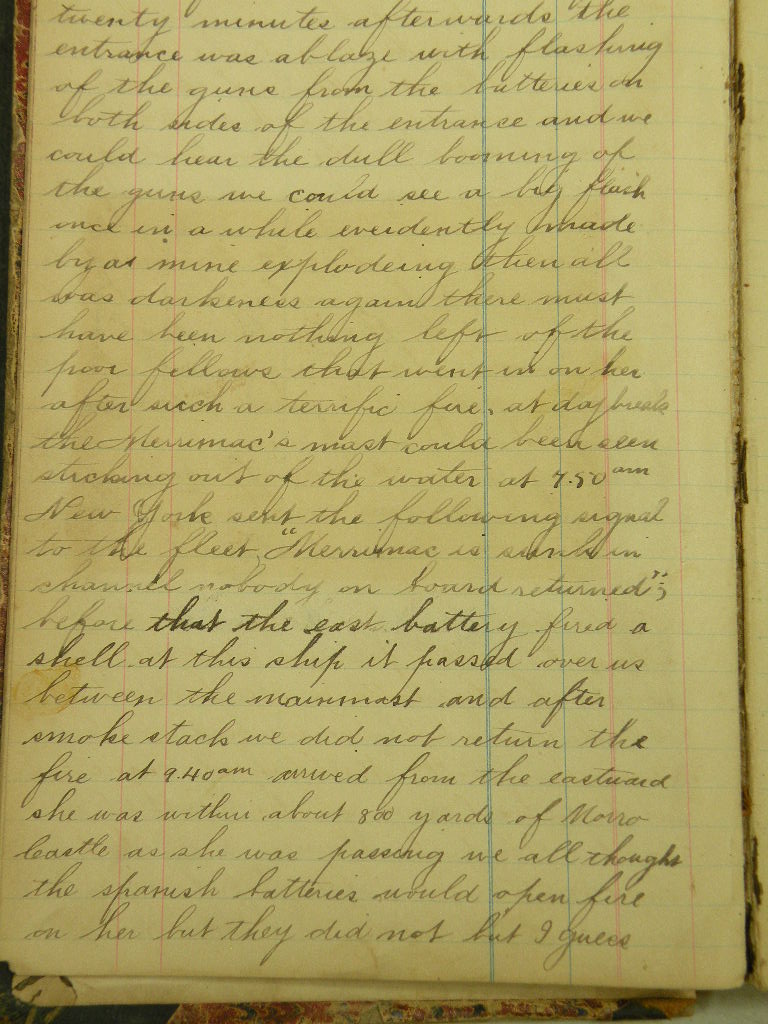 twenty minutes afterwards the
entrance was ablaze with flashing
of the guns from the batteries on
both sides of the entrance and we
could hear the dull booming of
the guns we could see a big flash
once in a while evedently made
by a mine explodeing then all
was darkeness again there must
have been nothing left of the
poor fellows that went in on her
after such a terrific fire, at daybreak
the Merrimac's mast could been seen
sticking out of the water at 7.50 am
New York sent the following signal
to the fleet "Merrimac is sunk in
channel nobody on board returned";
before that the east battery fired a
shell at this ship it passed over us
between the mainmast and after
smoke stack we did not return the
fire at 9.40 am arived from the eastward
she was within about 800 yards of Morro
Castle as she was passing we all thought
the spanish batteries would open fire
on her but they did not but I guess